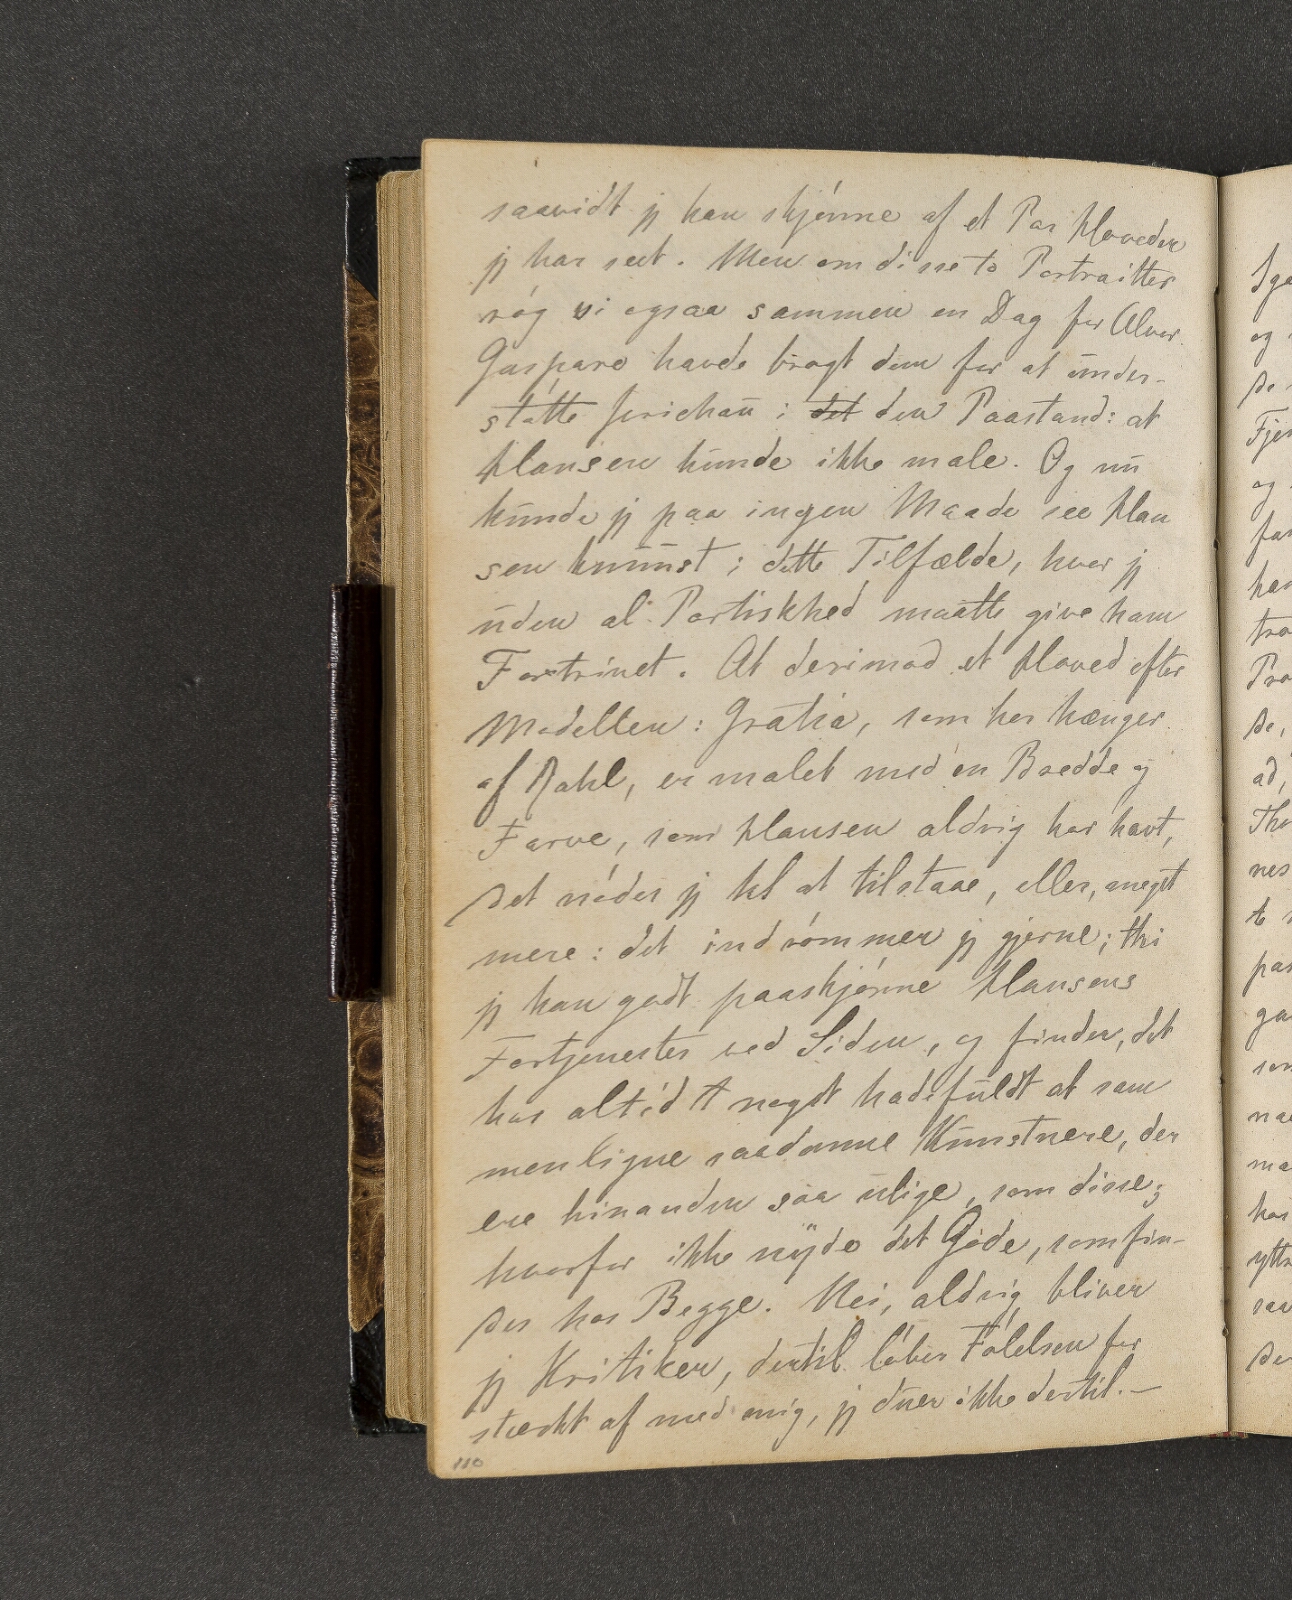 saavidt jg kan skjönne af et Par Hoveder
jg har seet. Men om disse to Portraitter
røg vi ogsaa sammen en Dag for Alvor.
Gaspare havde bragt dem for at under-
støtte Jerichau i det den Paastand: at
Hansen kunde ikke male. Og nu
kunde jg paa ingen Maade see Han
sen kuunst i dette Tilfælde, hvor jg
uden al Partiskhed maatte give ham
Fortrinet. At derimod et Hoved efter
Modellen: Gratia, som her hænger
af Dahl, er malet med en Bredde og
Farve, som Hansen aldrig har havt,
det nøder jg til at tilstaae, eller, meget
mere: det indrømmer jg gjerne; thi
jg kan godt paaskjönne Hansens
Fortjenester ved Siden, og finder, det
har altid noget hadefuldt at sam
menligne saadanne Kunstnere, der
ere hinanden saa ulige, som disse;
hvorfor ikke nÿde det Gode, som fin-
des hos Begge. Nei, aldrig bliver
jg Kritiker, dertil løber Følelsen for
stærkt af med mig, jg duer ikke dertil.—
110
Fjer
og
tra
Pro
ad,
nes
pas
ga
som
naa
ma
har
yttr
saa